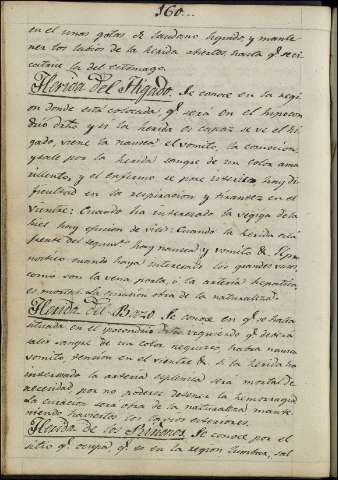 160...
en el unas gotas de laudano liquido, y mante-
ner los labios de la herida abiertos, hasta qe. se ci-
catrise la del estomago.
Herida del Higado. Se conoce en la regi-
on donde está colocada qe. será en el hipocon-
drio dro. y si la herida es capaz se ve el hi-
gado, viene la nausea el vomito, la concusion,
y sale por la herida sangre de un color ama-
rillento, y el enfermo se pone hay di-
ficultad en la respiracion y tirantez en el
vientre: Cuando ha interesado la vegiga de la
hiel hay efusion de vilis: Cuando la herida está
frente del hay nausea y vomito &. El pro-
nostico cuando haya interesado los grandes vasos,
como son la vena porta, ó la arteria hepatica,
es mortal la curacion obra de la naturaleza.
Herida del Bazo Se conoce en qe. se halla
situada en el ipocondrio izquierdo qe. deberá
salir sangre de un color negruzco, habrá nausea
vomito, tension en el vientre &. si la herida ha
interesado la arteria esplenica sera mortal de
necesidad por no poderse detener la hemorragia
La curacion será obra de la naturaleza mante-
niendo haviertos los lavios exteriores.
Herida de los Riñones. Se conoce por el
sitio qe. ocupa, qe. es en la region lumbar, sal